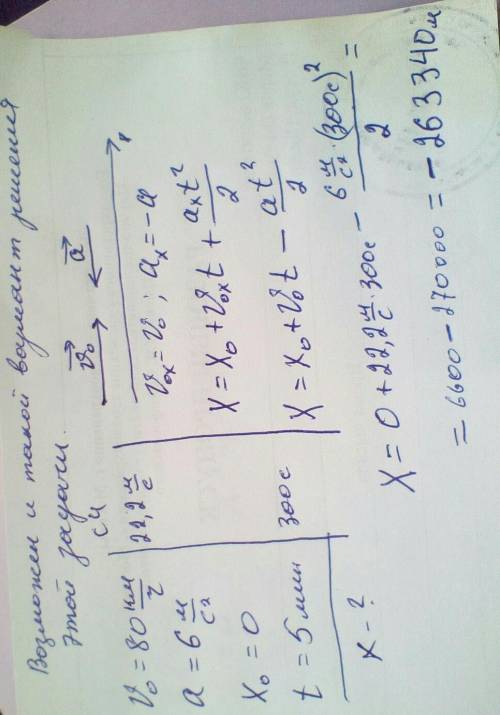 Возможен и такой вариант решения
этой задачи.
СИ
v₀ = 80 км/ч
22,2 м/с
a = 6 м/с²
x₀ = 0
t = 5 мин
300 с
x - ?
v⃗₀ a⃗
v₀ₓ = v₀ ; aₓ = -a
x = x₀ + v₀ₓt + aₓt²/2
x = x₀ + v₀t - at²/2
x = 0 + 22,2 м/с · 300с - 6 м/с² · (300с)²/2 =
= 6600 - 270000 = - 263340 м